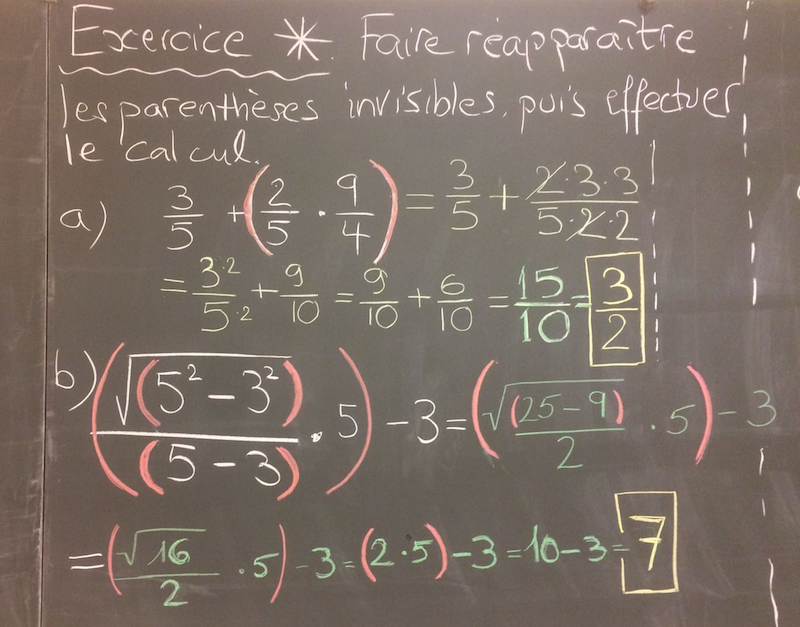 Exercice *. Faire réapparaître
les parenthèses invisibles, puis effectuer
le calcul.
a) 3/5 + (2/5 · 9/4) = 3/5 + 2·3·3/5·2·2
= 3·2/5·2 + 9/10 = 9/10 + 6/10 = 15/10 = 3/2
b) (√(5² − 3²)/(5 − 3) · 5) − 3 = (√(25 − 9)/2 · 5) − 3
= (√16/2 · 5) − 3 = (2·5) − 3 = 10 − 3 = 7